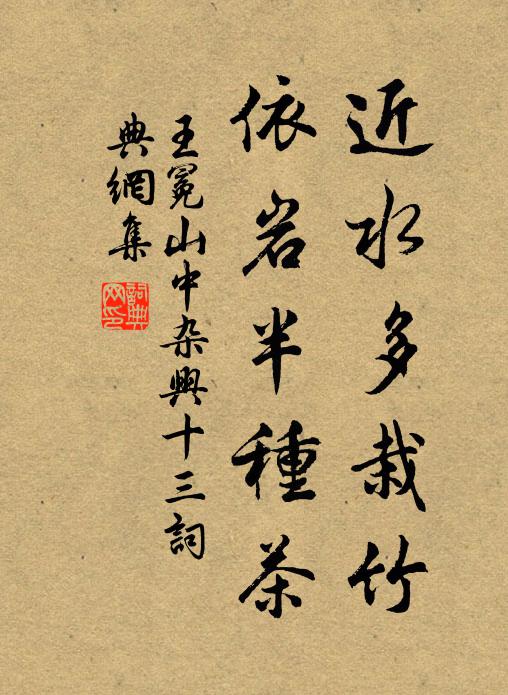 近水多栽竹
依岩半種茶
王冕山中杂興十三詞
典網集
詞典
网印